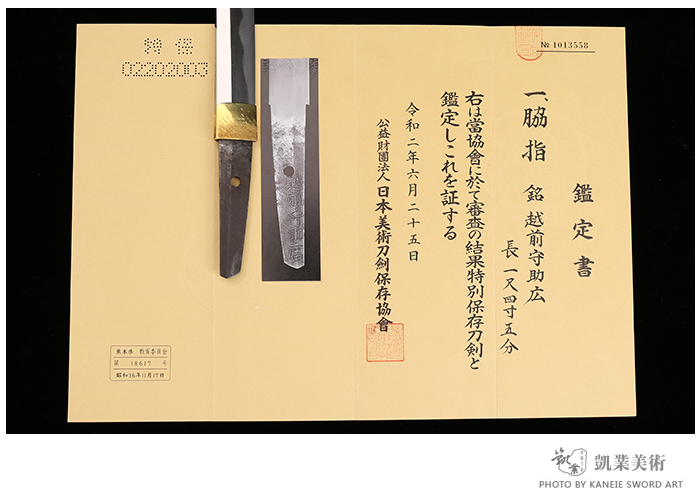 鑑定書
一、脇指 銘 越前守助広
長一尺四寸五分
右は當協會に於て審査の結果特別保存刀剣と
鑑定しこれを証する
令和二年六月二十五日
公益財團法人 日本美術刀剣保存協會
№ 1013558
特保
02202003
熊本県 教育委員会
第 18617 号
昭和36年11月17日
凱業美術
PHOTO BY KANEIE SWORD ART